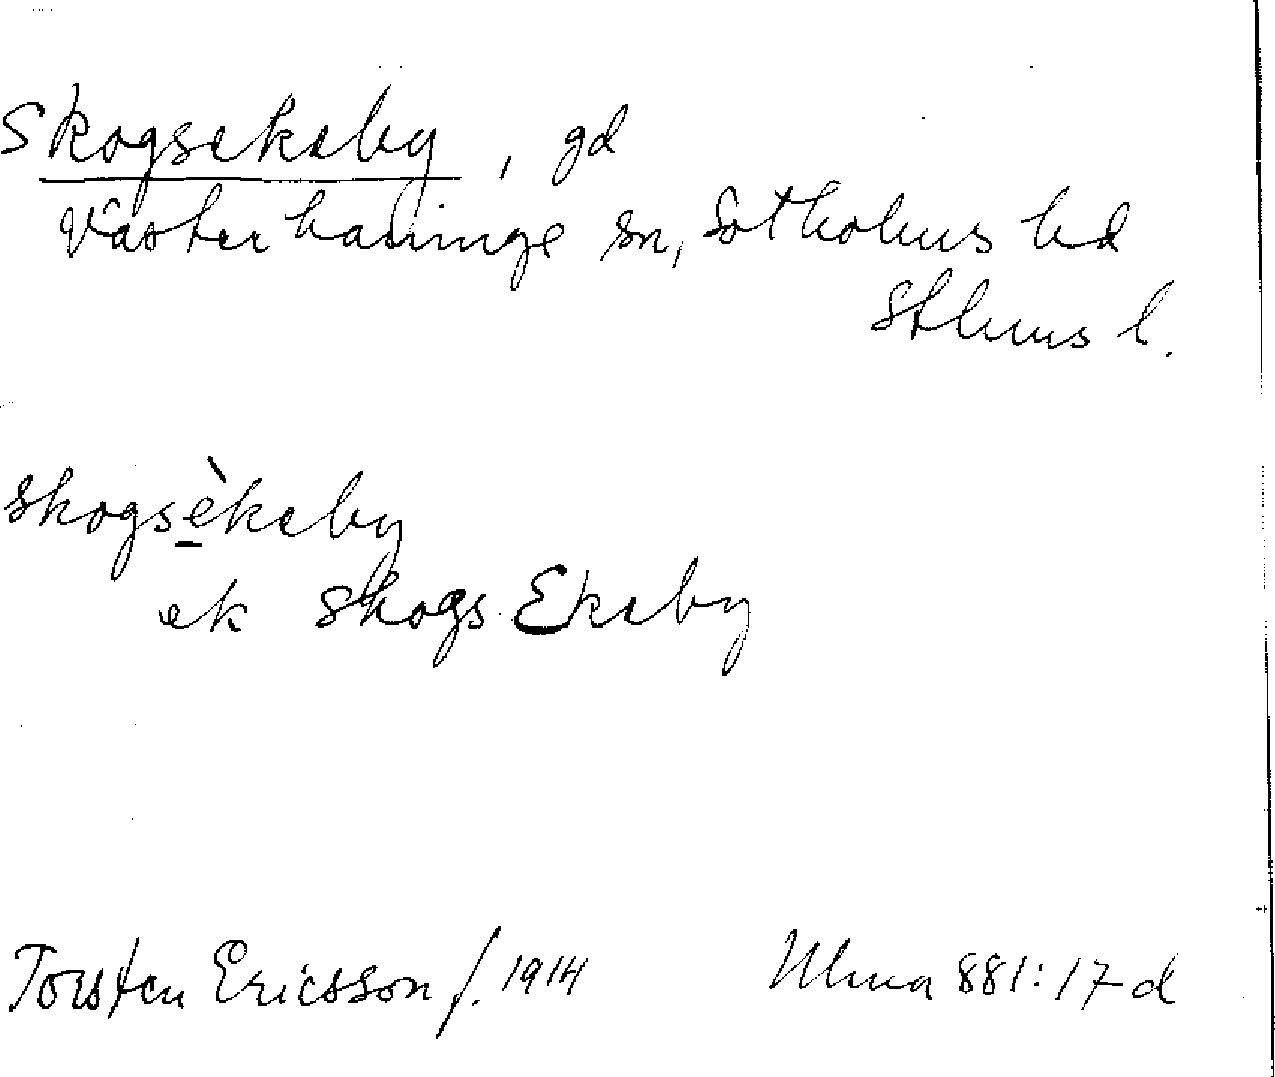 Skogsekeby, gd
Västerhaninge sn, Sotholms hd
Sthlms l.
skogsèkeby
ek skogs Ekeby
Torsten Ericsson f. 1914 Ulma 881:17 d